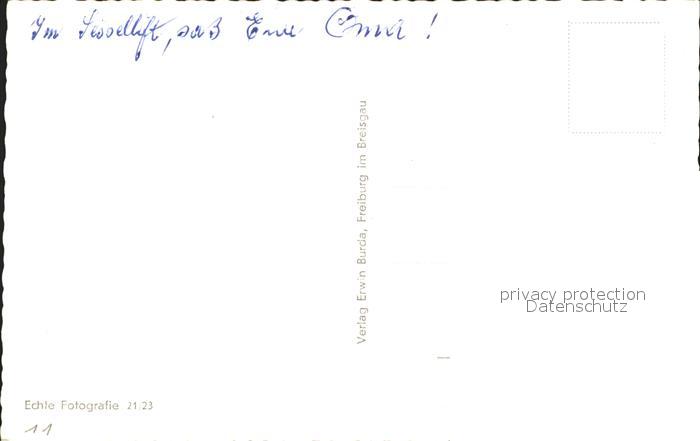 Im Sessellift, saß Eure Oma!
Verlag Erwin Burda, Freiburg im Breisgau
privacy protection
Datenschutz
Echte Fotografie 21/23
11